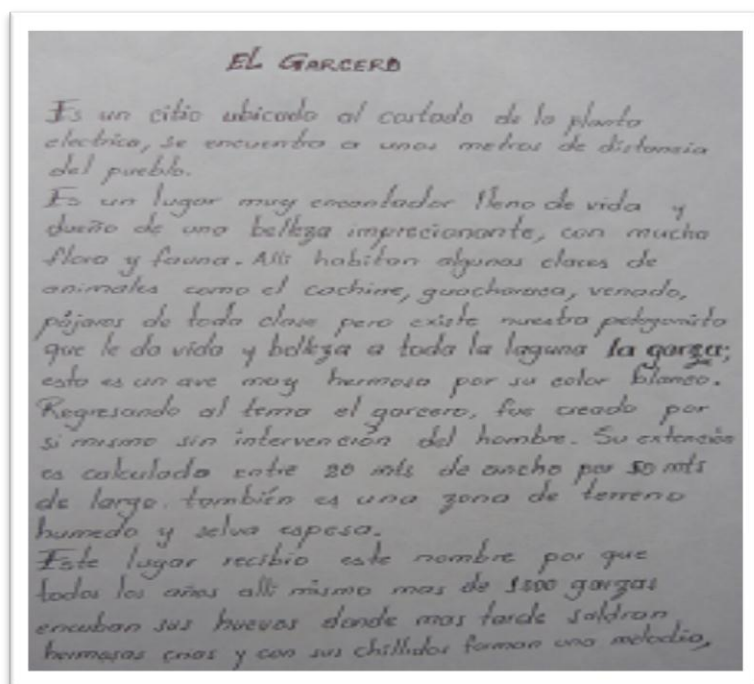 EL GARCERO
Es un citio ubicado al costado de la planta
electrica, se encuentra a unos metros de distancia
del pueblo.
Es un lugar muy encantador lleno de vida y
dueño de una belleza imprecionante, con mucha
flora y fauna. Alli habitan algunas claces de
animales como el cachirre, guacharaca, venado,
pájaros de toda clase pero existe nuestra
que le da vida y belleza a toda la laguna la garza;
esta es un ave muy hermosa por su color blanco.
Regresando al tema el garcero, fue creado por
si mismo sin intervención del hombre. Su extención
es calculada entre 20 mts de ancho por 50 mts
de largo. también es una zona de terreno
humedo y selva espesa.
Este lugar recibio este nombre por que
todos los años alli mismo mas de garzas
encuban sus huevos donde mas tarde saldran
hermosas crias y con sus chillidos forman una melodia,